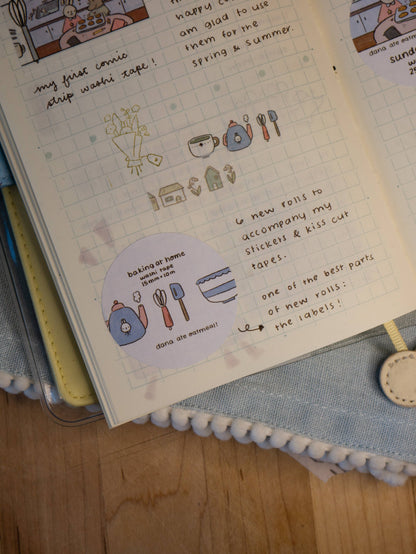 happy
am glad to use
them for the
spring & summer.
my first comic
strip washi tape!
6 new rolls to
accompany my
stickers & kiss cut
tapes.
one of the best parts
of new rolls:
the labels!
baking at home
washi tape
15mm x 10m
dana ate oatmeal!
dana ate